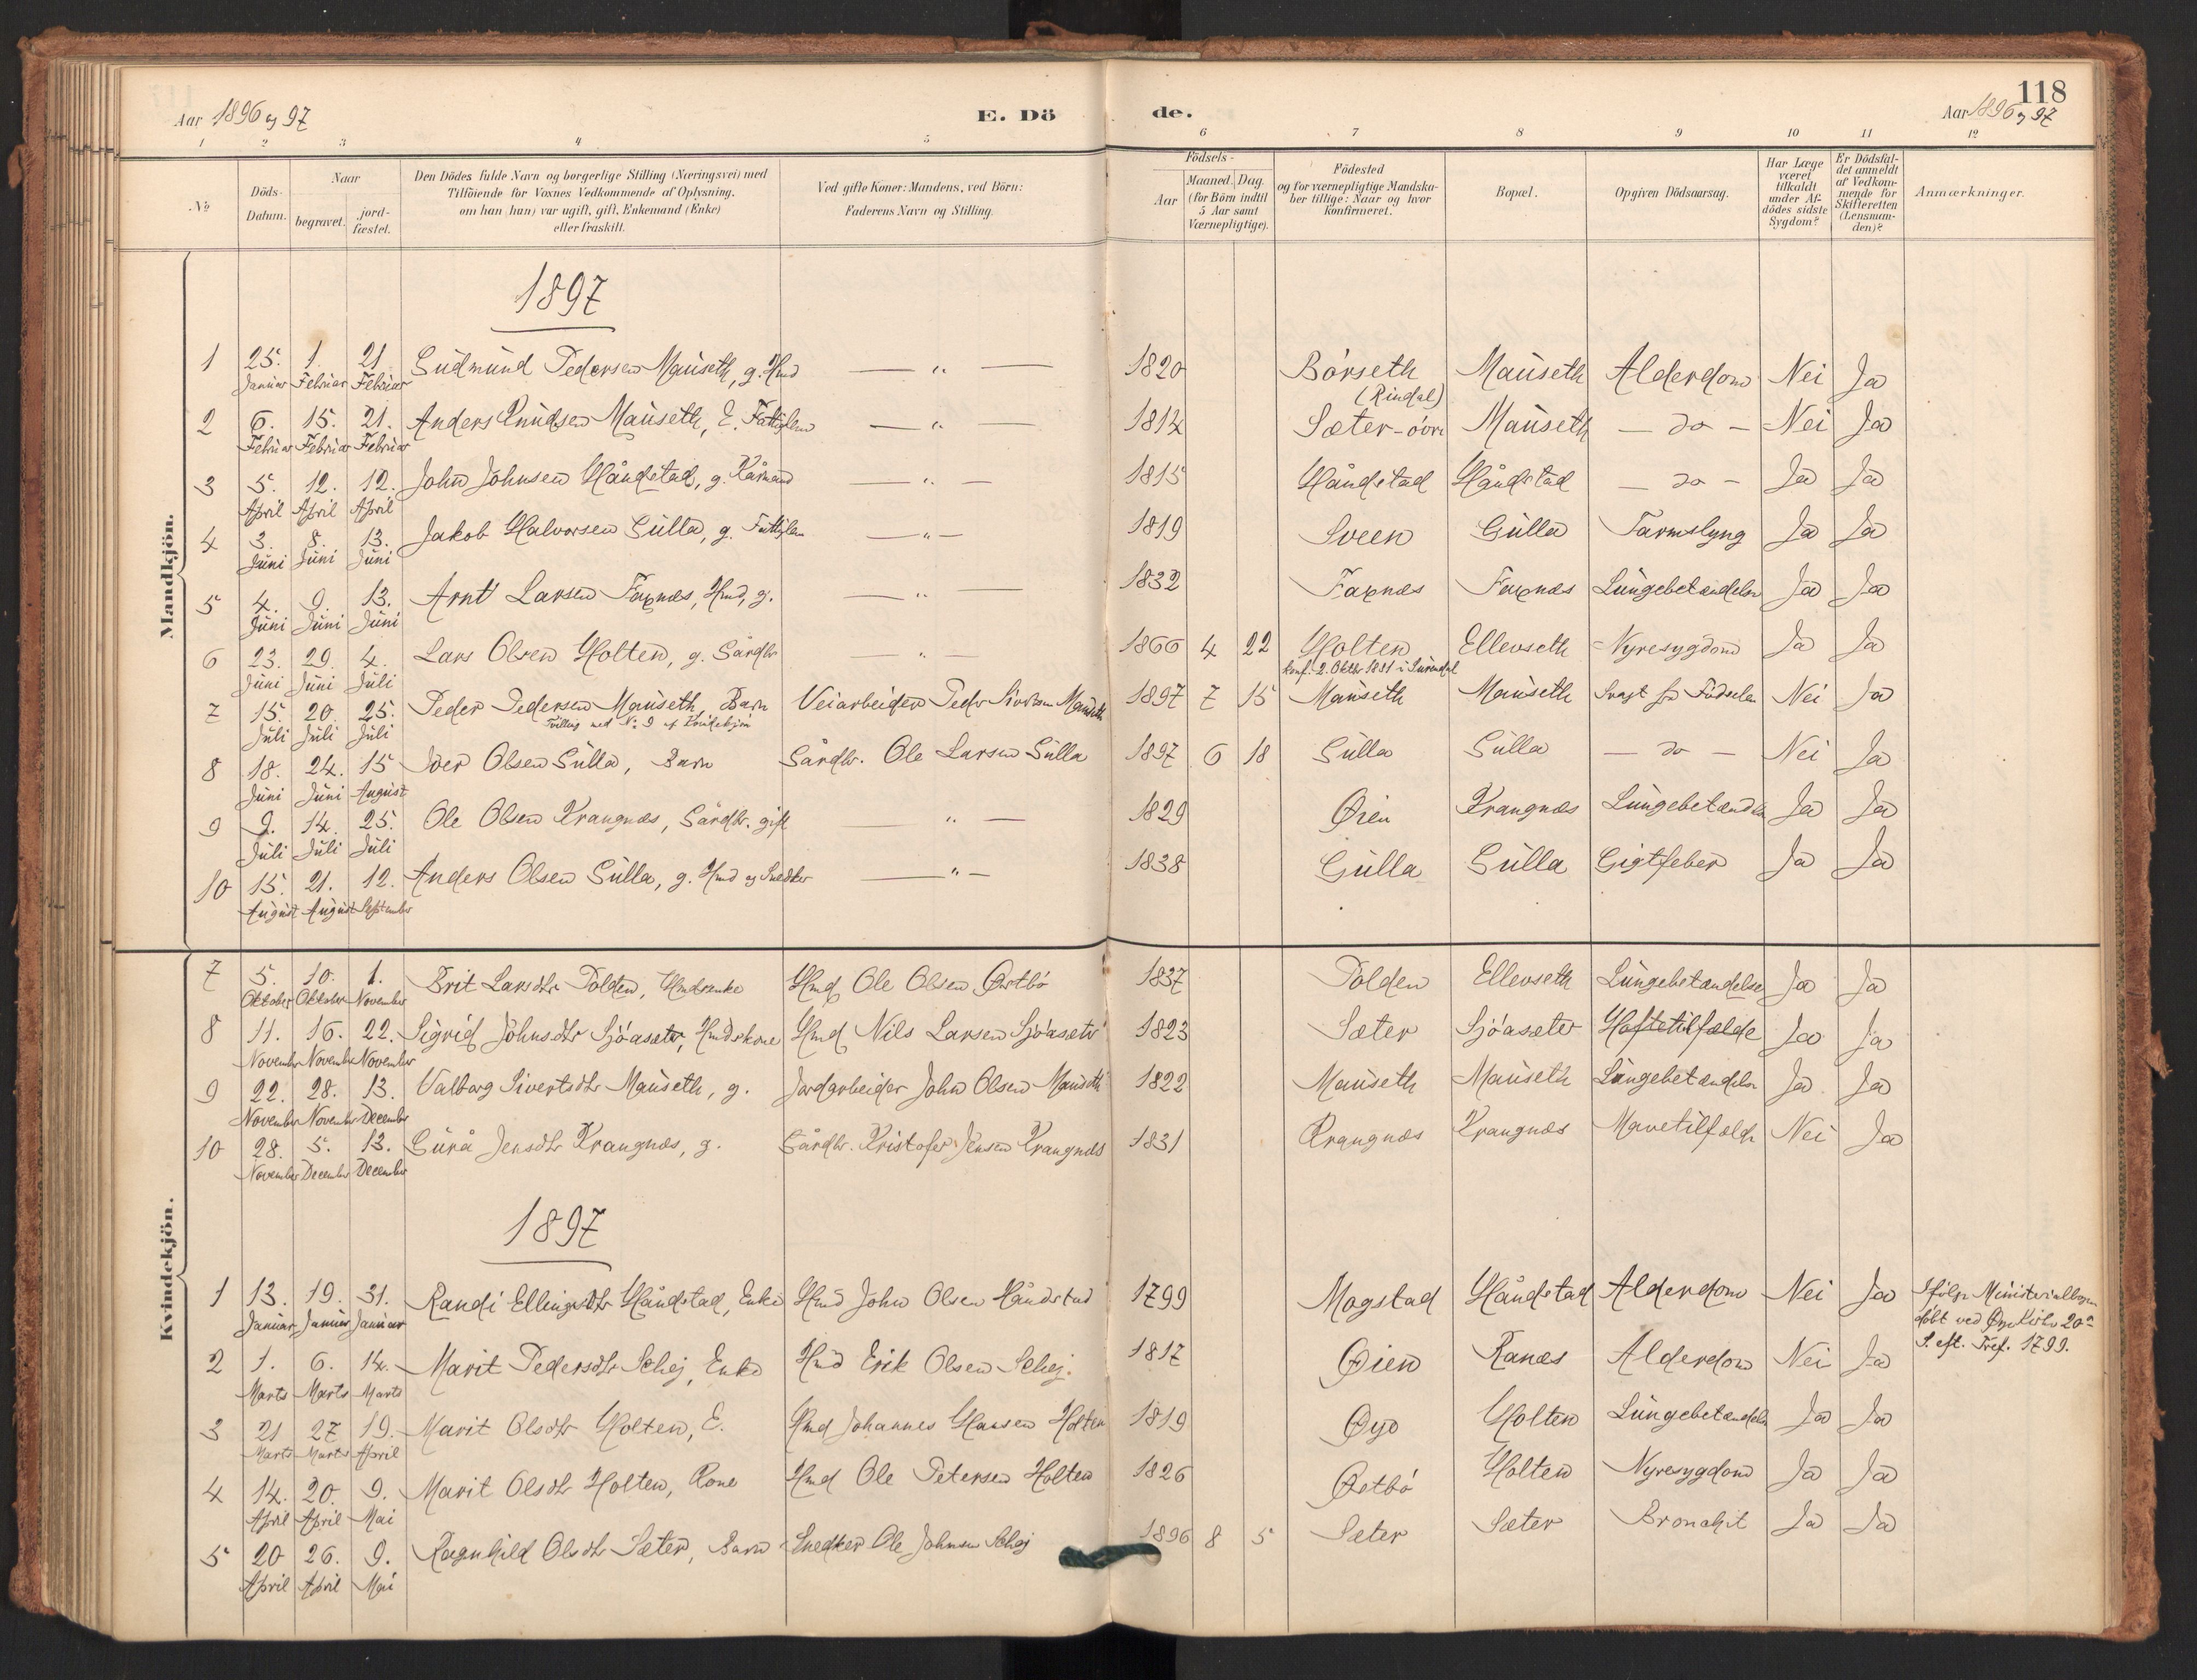 Aar 1896 og 97 E. Dö de. Aar 1896 og 97 118
1 2 3 4 5 6 7 8 9 10 11 12
No Döds-Datum. Naar begravet. jord-fæstet. Den Dödes fulde Navn og borgerlige Stilling (Næringsvei) med Tilföiende for Voxnes Vedkommende af Oplysning. om han (hun) var ugift, gift, Enkemand (Enke) eller fraskilt. Ved gifte Koner: Mandens, ved Börn: Faderens Navn og Stilling. Födsels- Aar Maaned. Dag. (for Börn indtil 5 Aar samt Værnepligtige). Födested og for værnepligtige Mandskaber tillige: Naar og hvor Konfirmeret. Bopæl. Opgiven Dödsaarsag. Har Læge været tilkaldt under Afdödes sidste Sygdom? Er Dödsfaldet anmeldt af Vedkommende for Skifteretten (Lensmanden)? Anmærkninger.
Mandkjön.
1897
1 25. Januar 1. Februar 21. Februar Gudmund Pedersen Mauseth, g. Hmd — " — 1820 Bórseth (Rindal) Mauseth Alderdom Nei Ja
2 6. Februar 15. Februar 21. Februar Anders Knudsen Mauseth, E. Fattiglem — " — 1814 Sæter-óvre Mauseth — do — Nei Ja
3 5. April 12. April 12. April John Johnsen Håndstad, g. Kårmand — " — 1815 Håndstad Håndstad — do — Ja Ja
4 3. Juni 8. Juni 13. Juni Jakob Halvorsen Gulla, g. Fattiglem — " — 1819 Sveen Gulla Tarmslyng Ja Ja
5 4. Juni 9. Juni 13. Juni Arnt Larsen Faxnæs, Hmd, g. — " — 1832 Faxnæs Faxnæs Lungebetændelse Ja Ja
6 23. Juni 29. Juni 4. Juli Lars Olsen Holten, g. Gårdbr — " — 1866 4 22 Holten Ellevseth Nyresygdom Ja Ja
konf. 2. Oktbr 1881 i Surendal
7 15. Juli 20. Juli 25. Juli Peder Pedersen Mauseth, Barn Veiarbeider Peder Sivertsen Mauseth 1897 7 15 Mauseth Mauseth Svagt fra Fødselen Nei Ja
Tvilling med No 9 af Kvindekjøn
8 18. Juni 24. Juni 15 August Iver Olsen Gulla, Barn Gårdbr. Ole Larsen Gulla 1897 6 18 Gulla Gulla — do — Nei Ja
9 9. Juli 14. Juli 25. Juli Ole Olsen Krangnæs, Gårdbr. gift — " — 1829 Øien Krangnæs Lungebetændelse Ja Ja
10 15. August 21. August 12. September Anders Olsen Gulla, g. Hmd og Snedker — " — 1838 Gulla Gulla Gigtfeber Ja Ja
Kvindekjön.
7 5. Oktober 10. Oktober 1. November Brit Larsdtr Polden, Hmdsenke Hmd Ole Olsen Østbó 1837 Polden Ellevseth Lungebetændelse Ja Ja
8 11. November 16. November 22. November Sigrid Johnsdtr Sjóasæter, Hmdskone Hmd Nils Larsen Sjóasæter 1823 Sæter Sjóasæter Hoftetilfælde Ja Ja
9 22. November 28. November 13. December Valborg Sivertsdtr Mauseth, g. Jordarbeider John Olsen Mauseth 1822 Mauseth Mauseth Lungebetændelse Ja Ja
10 28. November 5. December 13. December Gurå Jensdtr Krangnæs, g. Gårdbr. Kristofer Jensen Krangnæs 1831 Krangnæs Krangnæs Mavetilfælde Nei Ja
1897
1 13. Januar 19. Januar 31. Januar Randi Ellingsdtr Håndstad, Enke Hmd John Olsen Håndstad 1799 Mogstad Håndstad Alderdom Nei Ja Ifølge Ministerialbogen døbt ved Øye Kirke 20de S. eft. Tref. 1799.
2 1. Marts 6. Marts 14. Marts Marit Pedersdtr Schej, Enke Hmd Erik Olsen Schej. 1817 Øien Ranæs Alderdom Nei Ja
3 21 Marts 27 Marts 19. April Marit Olsdtr Holten, E. Hmd Johannes Hansen Holten 1819 Øye Holten Lungebetændelse Ja Ja
4 14. April 20. April 9. Mai Marit Olsdtr Holten, Kone Hmd Ole Petersen Holten 1826 Østbó Holten Nyresygdom Ja Ja
5 20 April 26. April 9. Mai Ragnhild Olsdtr Sæter, Barn Snedker Ole Johnsen Schej 1896 8 5 Sæter Sæter Bronchit Ja Ja